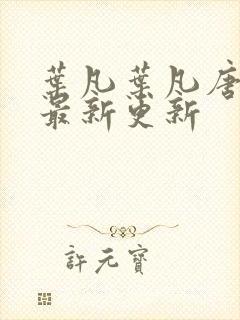 葉凡葉凡唐
最新更新
許元寶